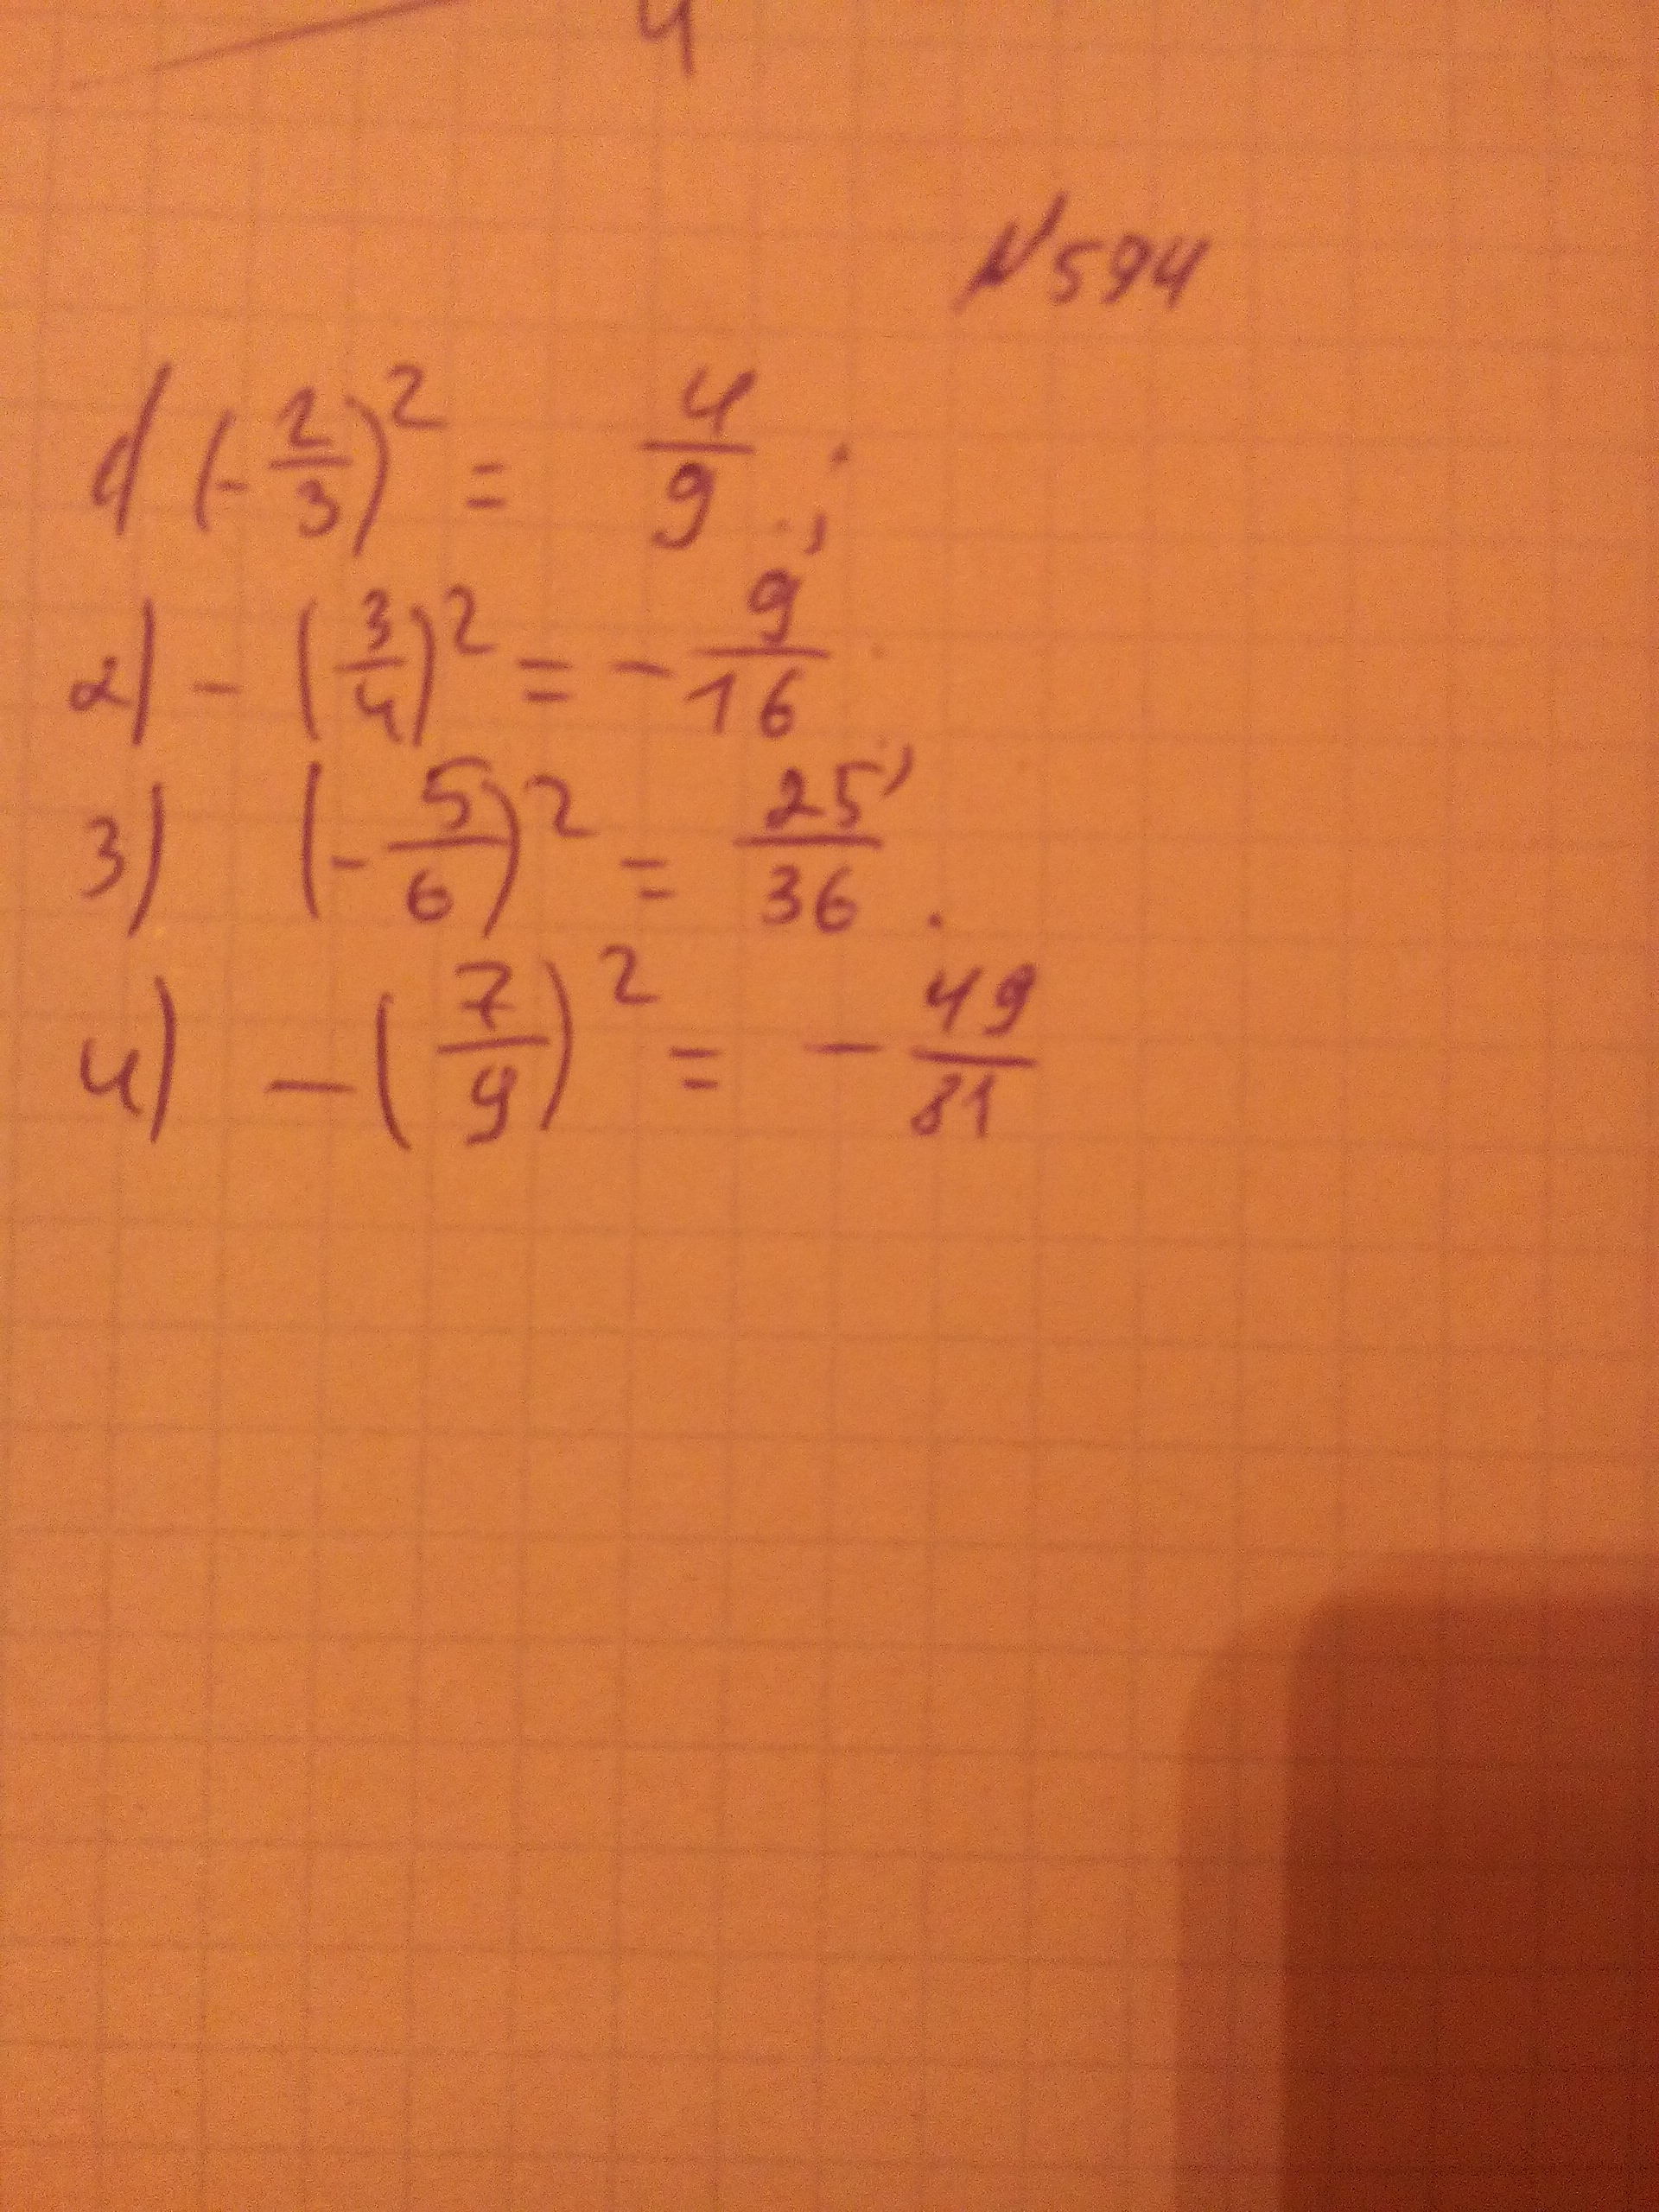 4
N594
1) (-2/3)² = 4/9 ;
2) - (3/4)² = - 9/16 ;
3) (-5/6)² = 25/36 .
4) - (7/9)² = - 49/81